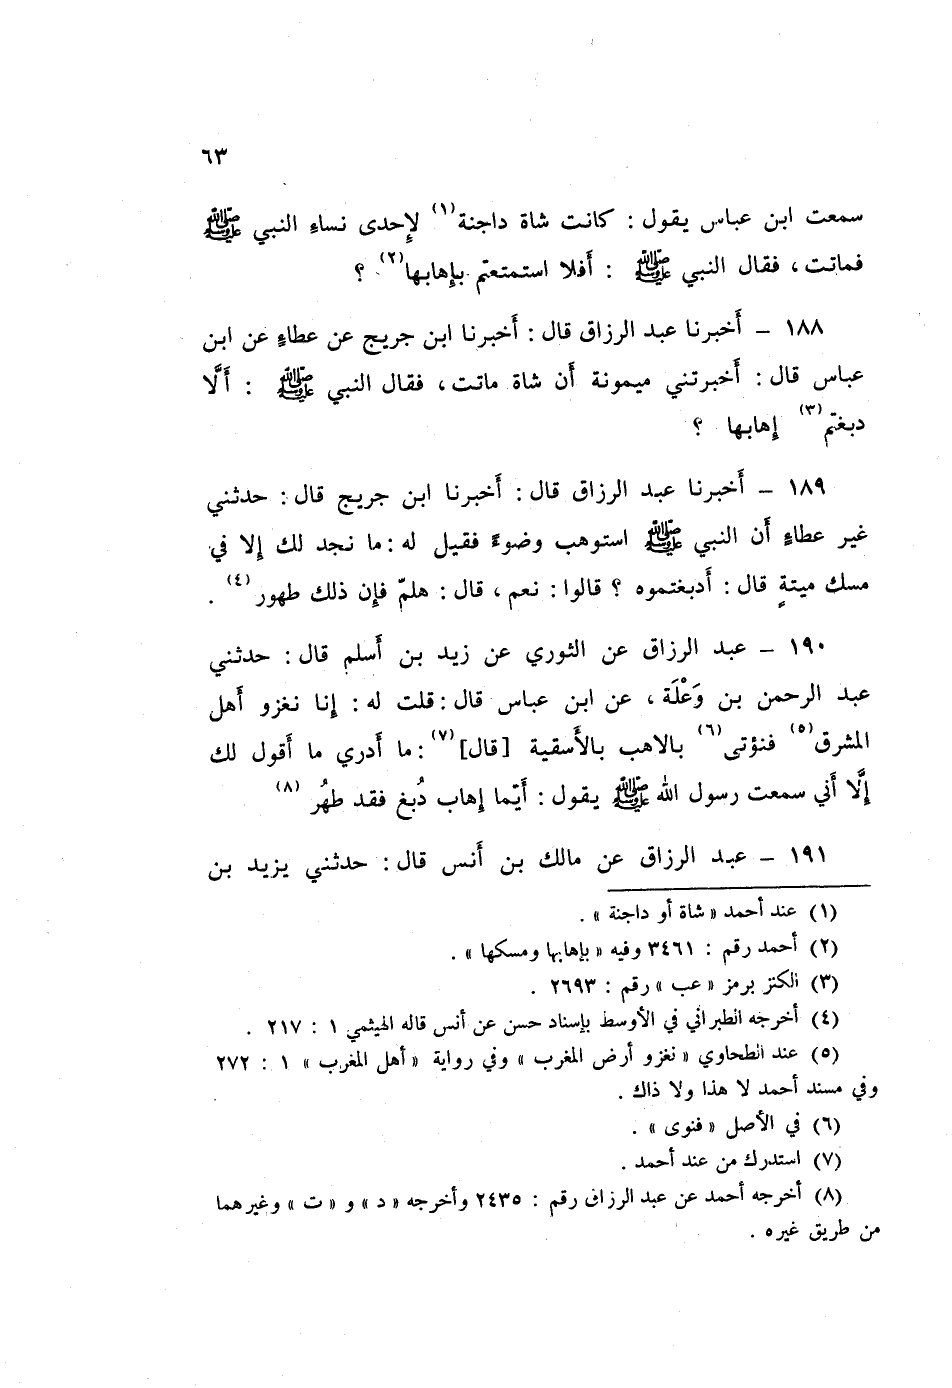 ٦٣
سمعت ابن عباس يقول : كانت شاة داجنة(١) لإِحدى نساءِ النبي ﷺ
فماتت ، فقال النبي ﷺ : أَفلا استمتعتم بإِهابها(٢) ؟
١٨٨ – أَخبرنا عبد الرزاق قال : أَخبرنا ابن جريج عن عطاءٍ عن ابن
عباس قال : أَخبرتني ميمونة أَن شاة ماتت ، فقال النبي ﷺ : أَلَّا
دبغتم(٣) إِهابها ؟
١٨٩ – أَخبرنا عبد الرزاق قال : أَخبرنا ابن جريج قال : حدثني
غير عطاءٍ أَن النبي ﷺ استوهب وضوءً فقيل له : ما نجد لك إِلا في
مسك ميتةٍ قال : أَدبغتموه ؟ قالوا : نعم ، قال : هلمّ فإِن ذلك طهور(٤) .
١٩٠ – عبد الرزاق عن الثوري عن زيد بن أَسلم قال : حدثني
عبد الرحمن بن وَعْلَة ، عن ابن عباس قال : قلت له : إِنا نغزو أَهل
المشرق(٥) فنؤتى(٦) بالاهب بالأَسقية [قال](٧) : ما أَدري ما أَقول لك
إِلَّا أَني سمعت رسول الله ﷺ يقول : أَيّما إِهاب دُبغ فقد طهُر(٨)
١٩١ – عبد الرزاق عن مالك بن أَنس قال : حدثني يزيد بن
(١) عند أحمد « شاة أو داجنة » .
(٢) أحمد رقم : ٣٤٦١ وفيه « بإهابها ومسكها » .
(٣) الكنز برمز « عب » رقم : ٢٦٩٣ .
(٤) أخرجه الطبراني في الأوسط بإسناد حسن عن أنس قاله الهيثمي ١ : ٢١٧ .
(٥) عند الطحاوي « نغزو أرض المغرب » وفي رواية « أهل المغرب » ١ : ٢٧٢
وفي مسند أحمد لا هذا ولا ذاك .
(٦) في الأصل « فنوى » .
(٧) استدرك من عند أحمد .
(٨) أخرجه أحمد عن عبد الرزاق رقم : ٢٤٣٥ وأخرجه « د » و « ت » وغيرهما
من طريق غيره .